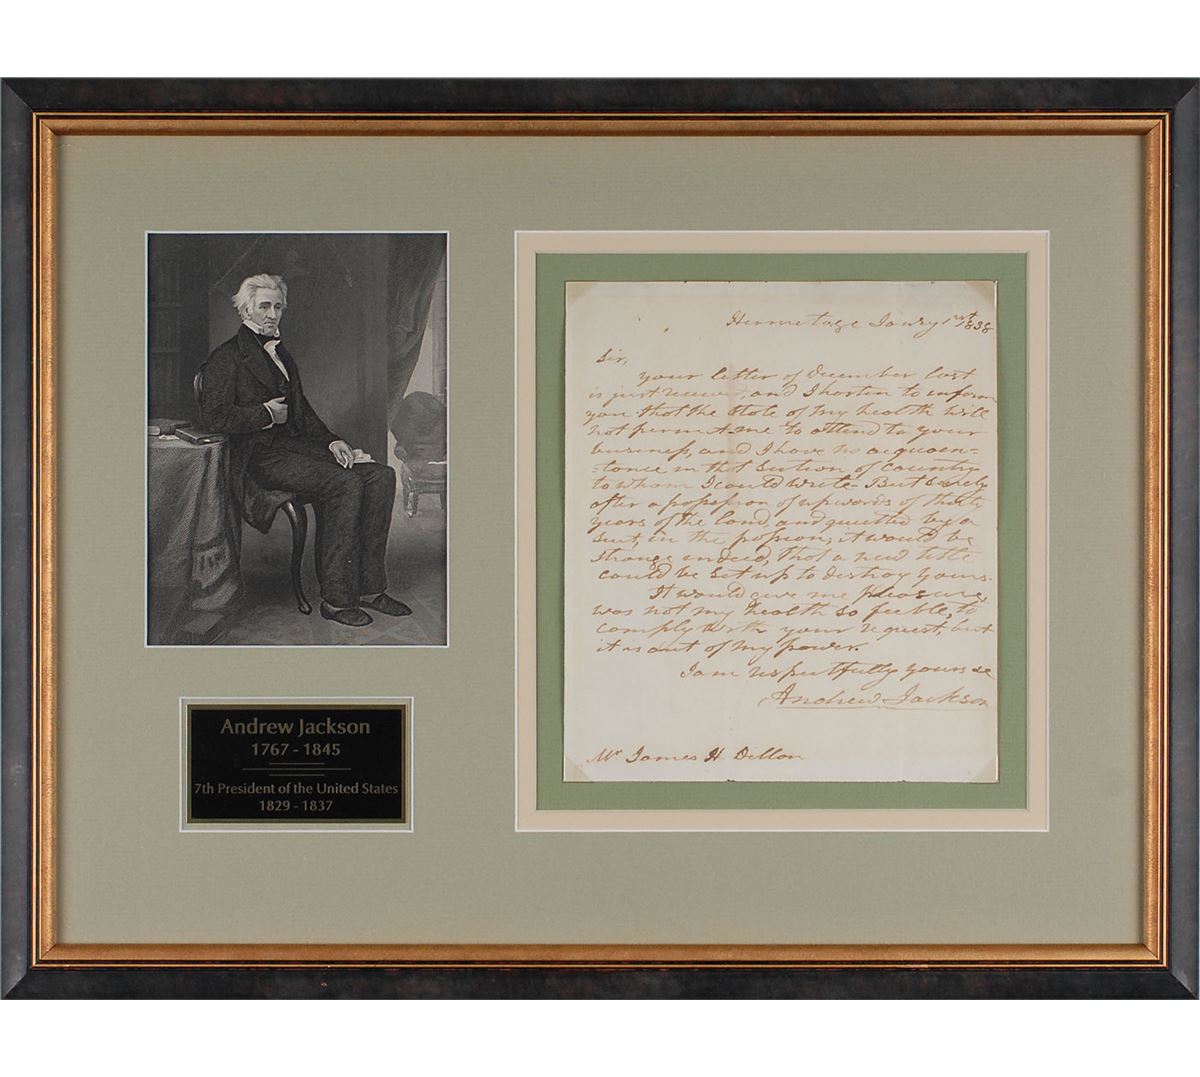 Hermitage Janry 1rst 1838
Sir,
your letter of December last
is just received, and I hasten to inform
you that the state of my health will
not permit me to attend to your
business, and I have no acquain-
-tance in that section of country
to whom I could write. But surely
after a possession of upwards of thirty
years of the land, and quieted by a
suit, in the possion, it would be
strange indeed, that a new title
could be set up to destroy yours.
It would give me pleasure,
was not my health so feeble, to
comply with your request, but
it is out of my power.
I am respectfully yours &c
Andrew Jackson
Mr James H Dillon
Andrew Jackson
1767 - 1845
7th President of the United States
1829 - 1837